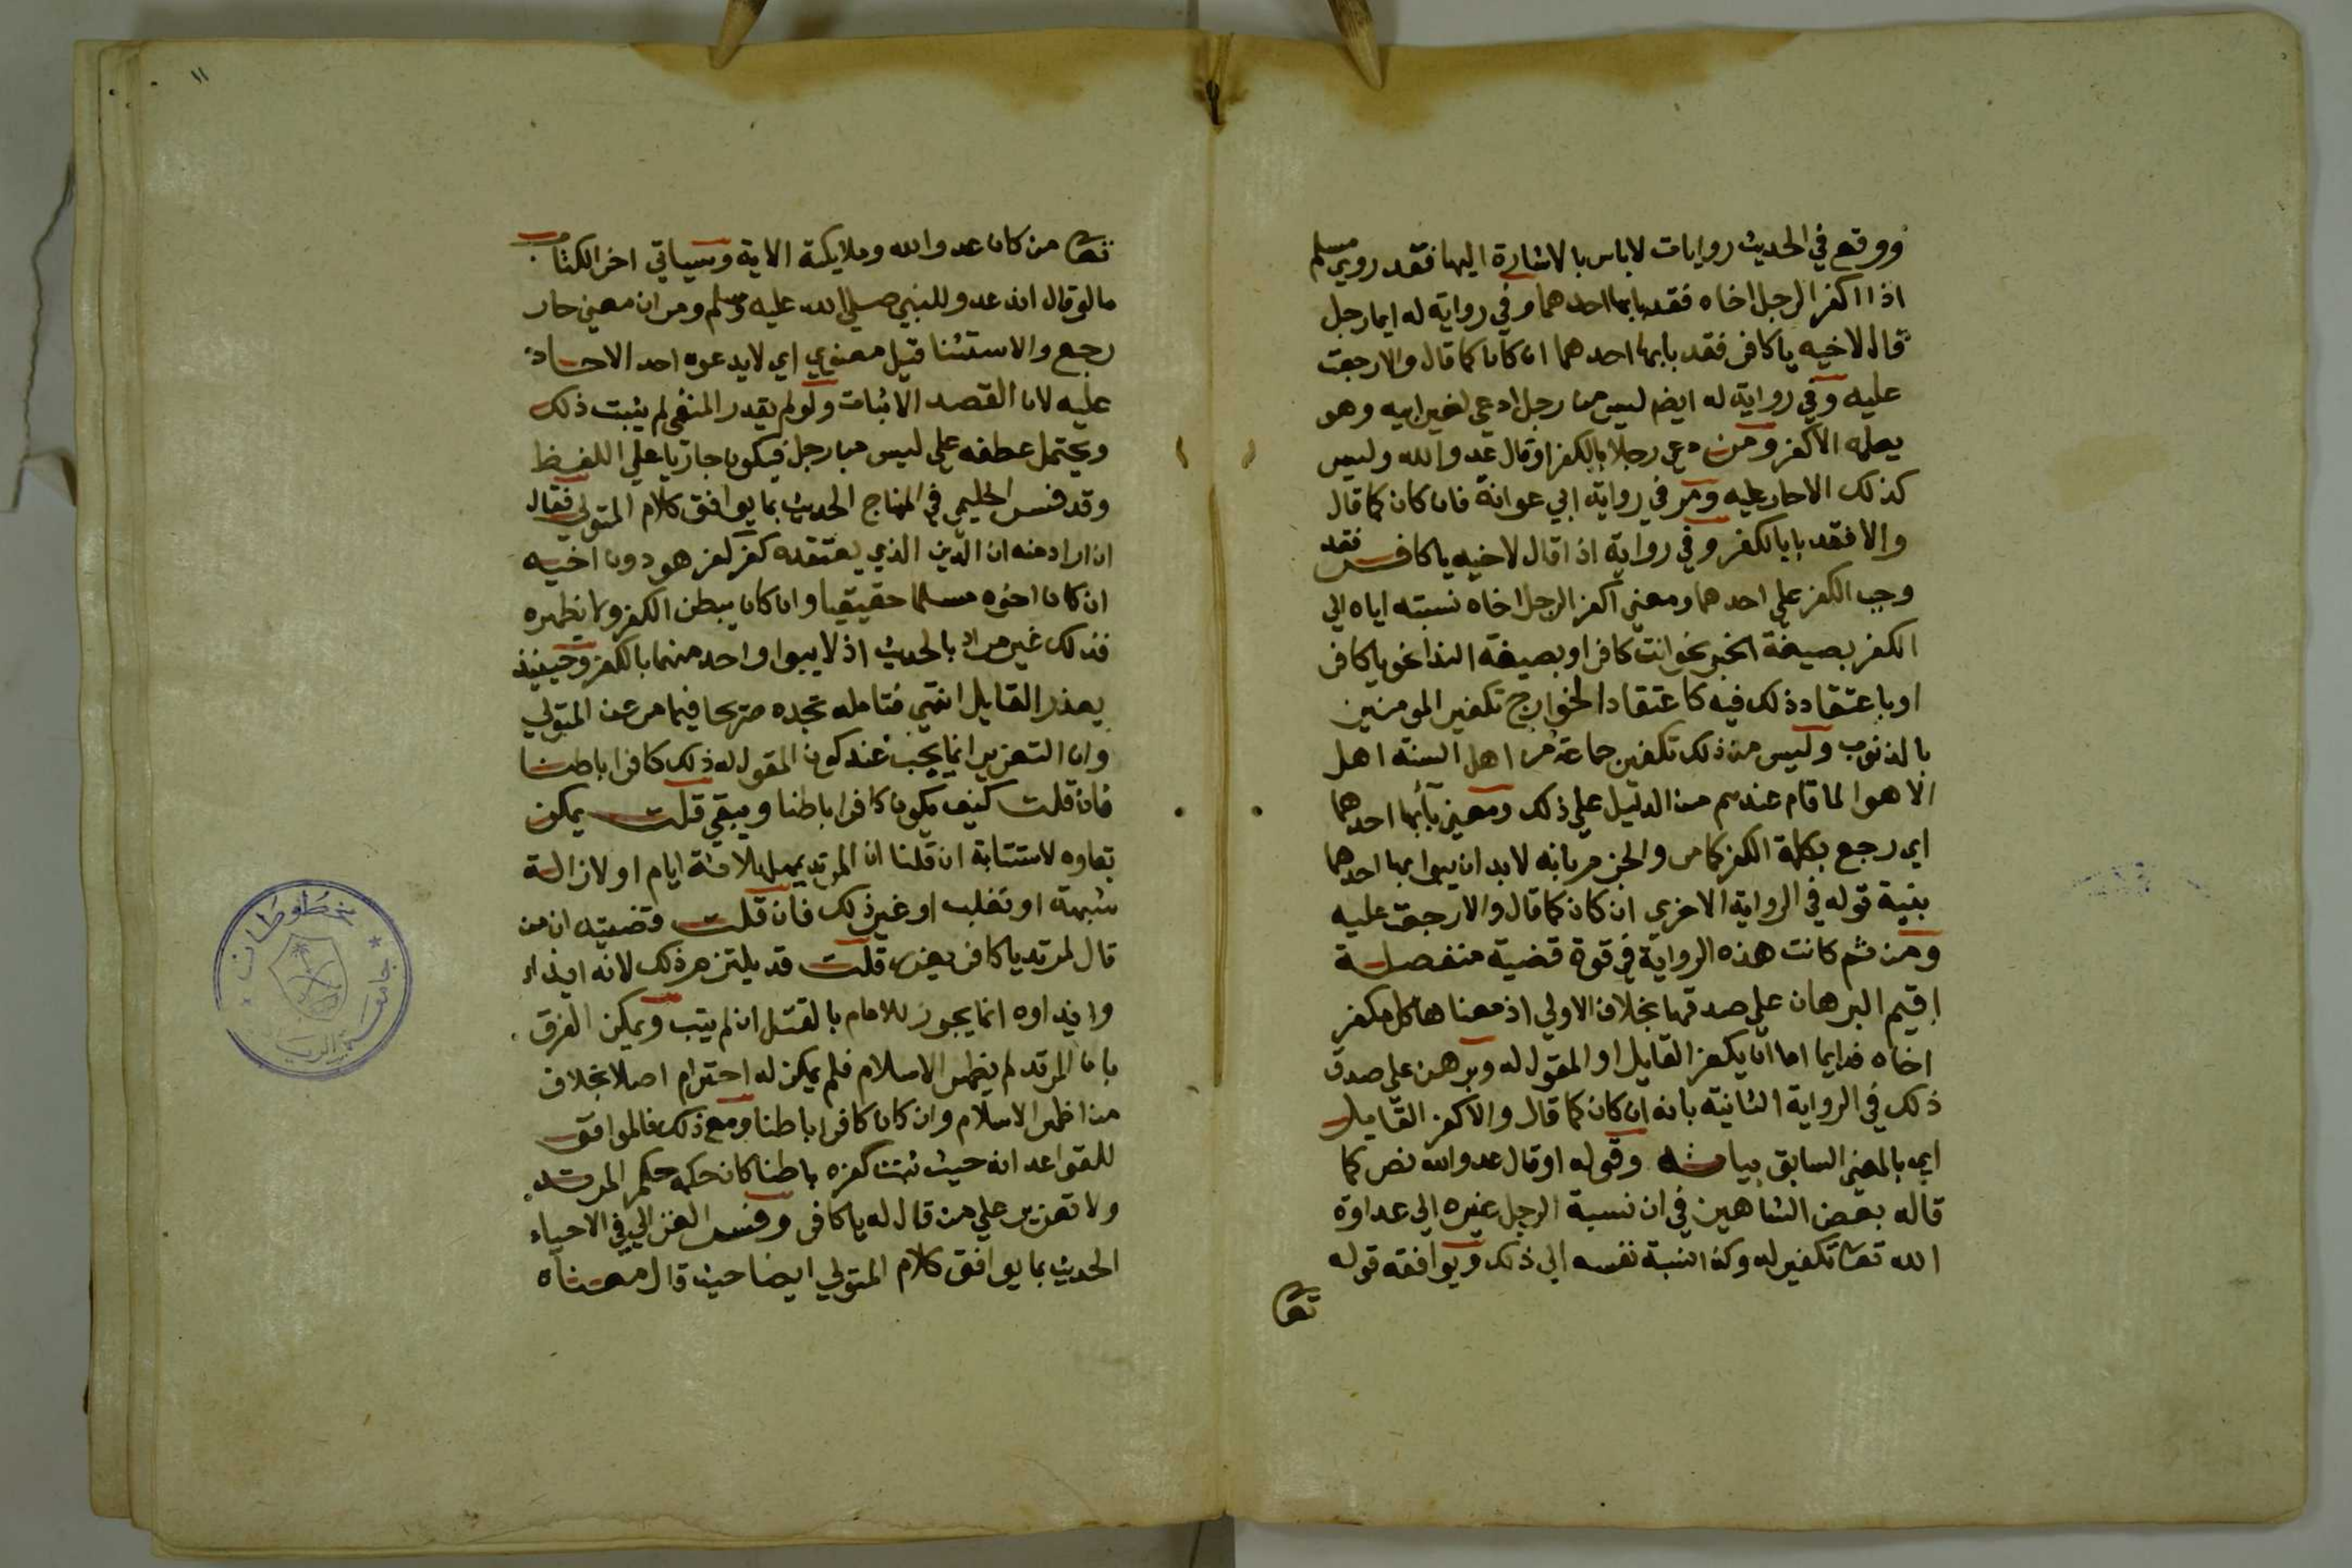 ووقع في الحديث روايات لاباس بالاشارة اليها فقد روي مسلم
اذا اكفر الرجل اخاه فقد باء بها احدهما وفي رواية له ايما رجل
قال لاخيه ياكافر فقد باء بها احدهما ان كان كما قال والا رجعت
عليه وفي رواية له ايضا ليس من رجل ادعي لغير ابيه وهو
يعلمه الا كفر ومن دعي رجلا بالكفر او قال عدو الله وليس
كذلك الا حار عليه ومر في رواية ابي عوانة فان كان كما قال
والا فقد باء بالكفر وفي رواية اذا قال لاخيه ياكافر فقد
وجب الكفر علي احدهما ومعني اكفر الرجل اخاه نسبته اياه الي
الكفر بصيغة الخبر نحو انت كافر او بصيغة الندا نحو ياكافر
او باعتقاد ذلك فيه كاعتقاد الخوارج تكفير المومنين
بالذنوب وليس من ذلك تكفير جماعة من اهل السنة اهل
الاهوا لما قام عندهم من الدليل علي ذلك ومعني باء بها احدهما
اي رجع بكلمة الكفر كما مر والجزم بانه لابد ان يبوا بها احدهما
بقية قوله في الرواية الاخري ان كان كما قال والا رجعت عليه
ومن ثم كانت هذه الرواية في قوة قضية منفصلة
اقيم البرهان علي صدقها بخلاف الاولي اذ معناها كل مكفر
اخاه فدايما اما ان يكفر القايل او المقول له وبرهن علي صدق
ذلك في الرواية الثانية بانه ان كان كما قال والا كفر القايل
اي بالمعني السابق بيانه وقوله او قال عدو الله نص كما
قاله بعض الشارحين في ان نسبة الرجل غيره الي عداوة
الله تعا تكفير له وكذا نسبة نفسه الي ذلك ويوافقه قوله
تعا
١١
تعا من كان عدوا لله وملايكته الاية وسياتي اخر الكتاب
ما لو قال انه عدو للنبي صلي الله عليه وسلم ومر ان معني حار
رجع والاستثنا قيل معنوي اي لا يدعوه احد الا حار
عليه لان القصد الاثبات ولو لم يقدر المنفي لم يثبت ذلك
ويحتمل عطفه علي ليس من رجل فيكون جاريا علي اللفظ
وقد فسر الحليمي في المنهاج الحديث بما يوافق كلام المتولي فقال
ان اراد منه ان الدين الذي يعتقده كفر كفر هو دون اخيه
ان كان اخوه مسلما حقيقيا وان كان يبطن الكفر ولا يظهره
فذلك غير مراد بالحديث اذ لا يبوا واحد منهما بالكفر وحينيذ
يعذر القايل انتهي فتامله تجده صريحا فيما مر عن المتولي
وان التعزير انما يجب عند كون المقول له ذلك كافرا باطنا
فان قلت كيف يكون كافرا باطنا ويبقي قلت يمكن
بقاوه لاستتابة ان قلنا ان المرتد يمهل ثلاثة ايام او لازالة
شبهة او تغلب او غير ذلك فان قلت قضيته ان من
قال لمرتد ياكافر يعزر قلت قد يلتزم ذلك لانه ايذاء
وايذاوه انما يجوز للامام بالقتل ان لم يتب ويمكن الفرق
بان المرتد لم يظهر الاسلام فلم يكن له احترام اصلا بخلاف
من اظهر الاسلام وان كان كافرا باطنا ومع ذلك فالموافق
للقواعد انه حيث ثبت كفره باطنا كان حكمه حكم المرتد
ولا تعزير علي من قال له ياكافر وفسر الغزالي في الاحياء
الحديث بما يوافق كلام المتولي ايضا حيث قال معناه
مخطوطات
جامعة الرياض